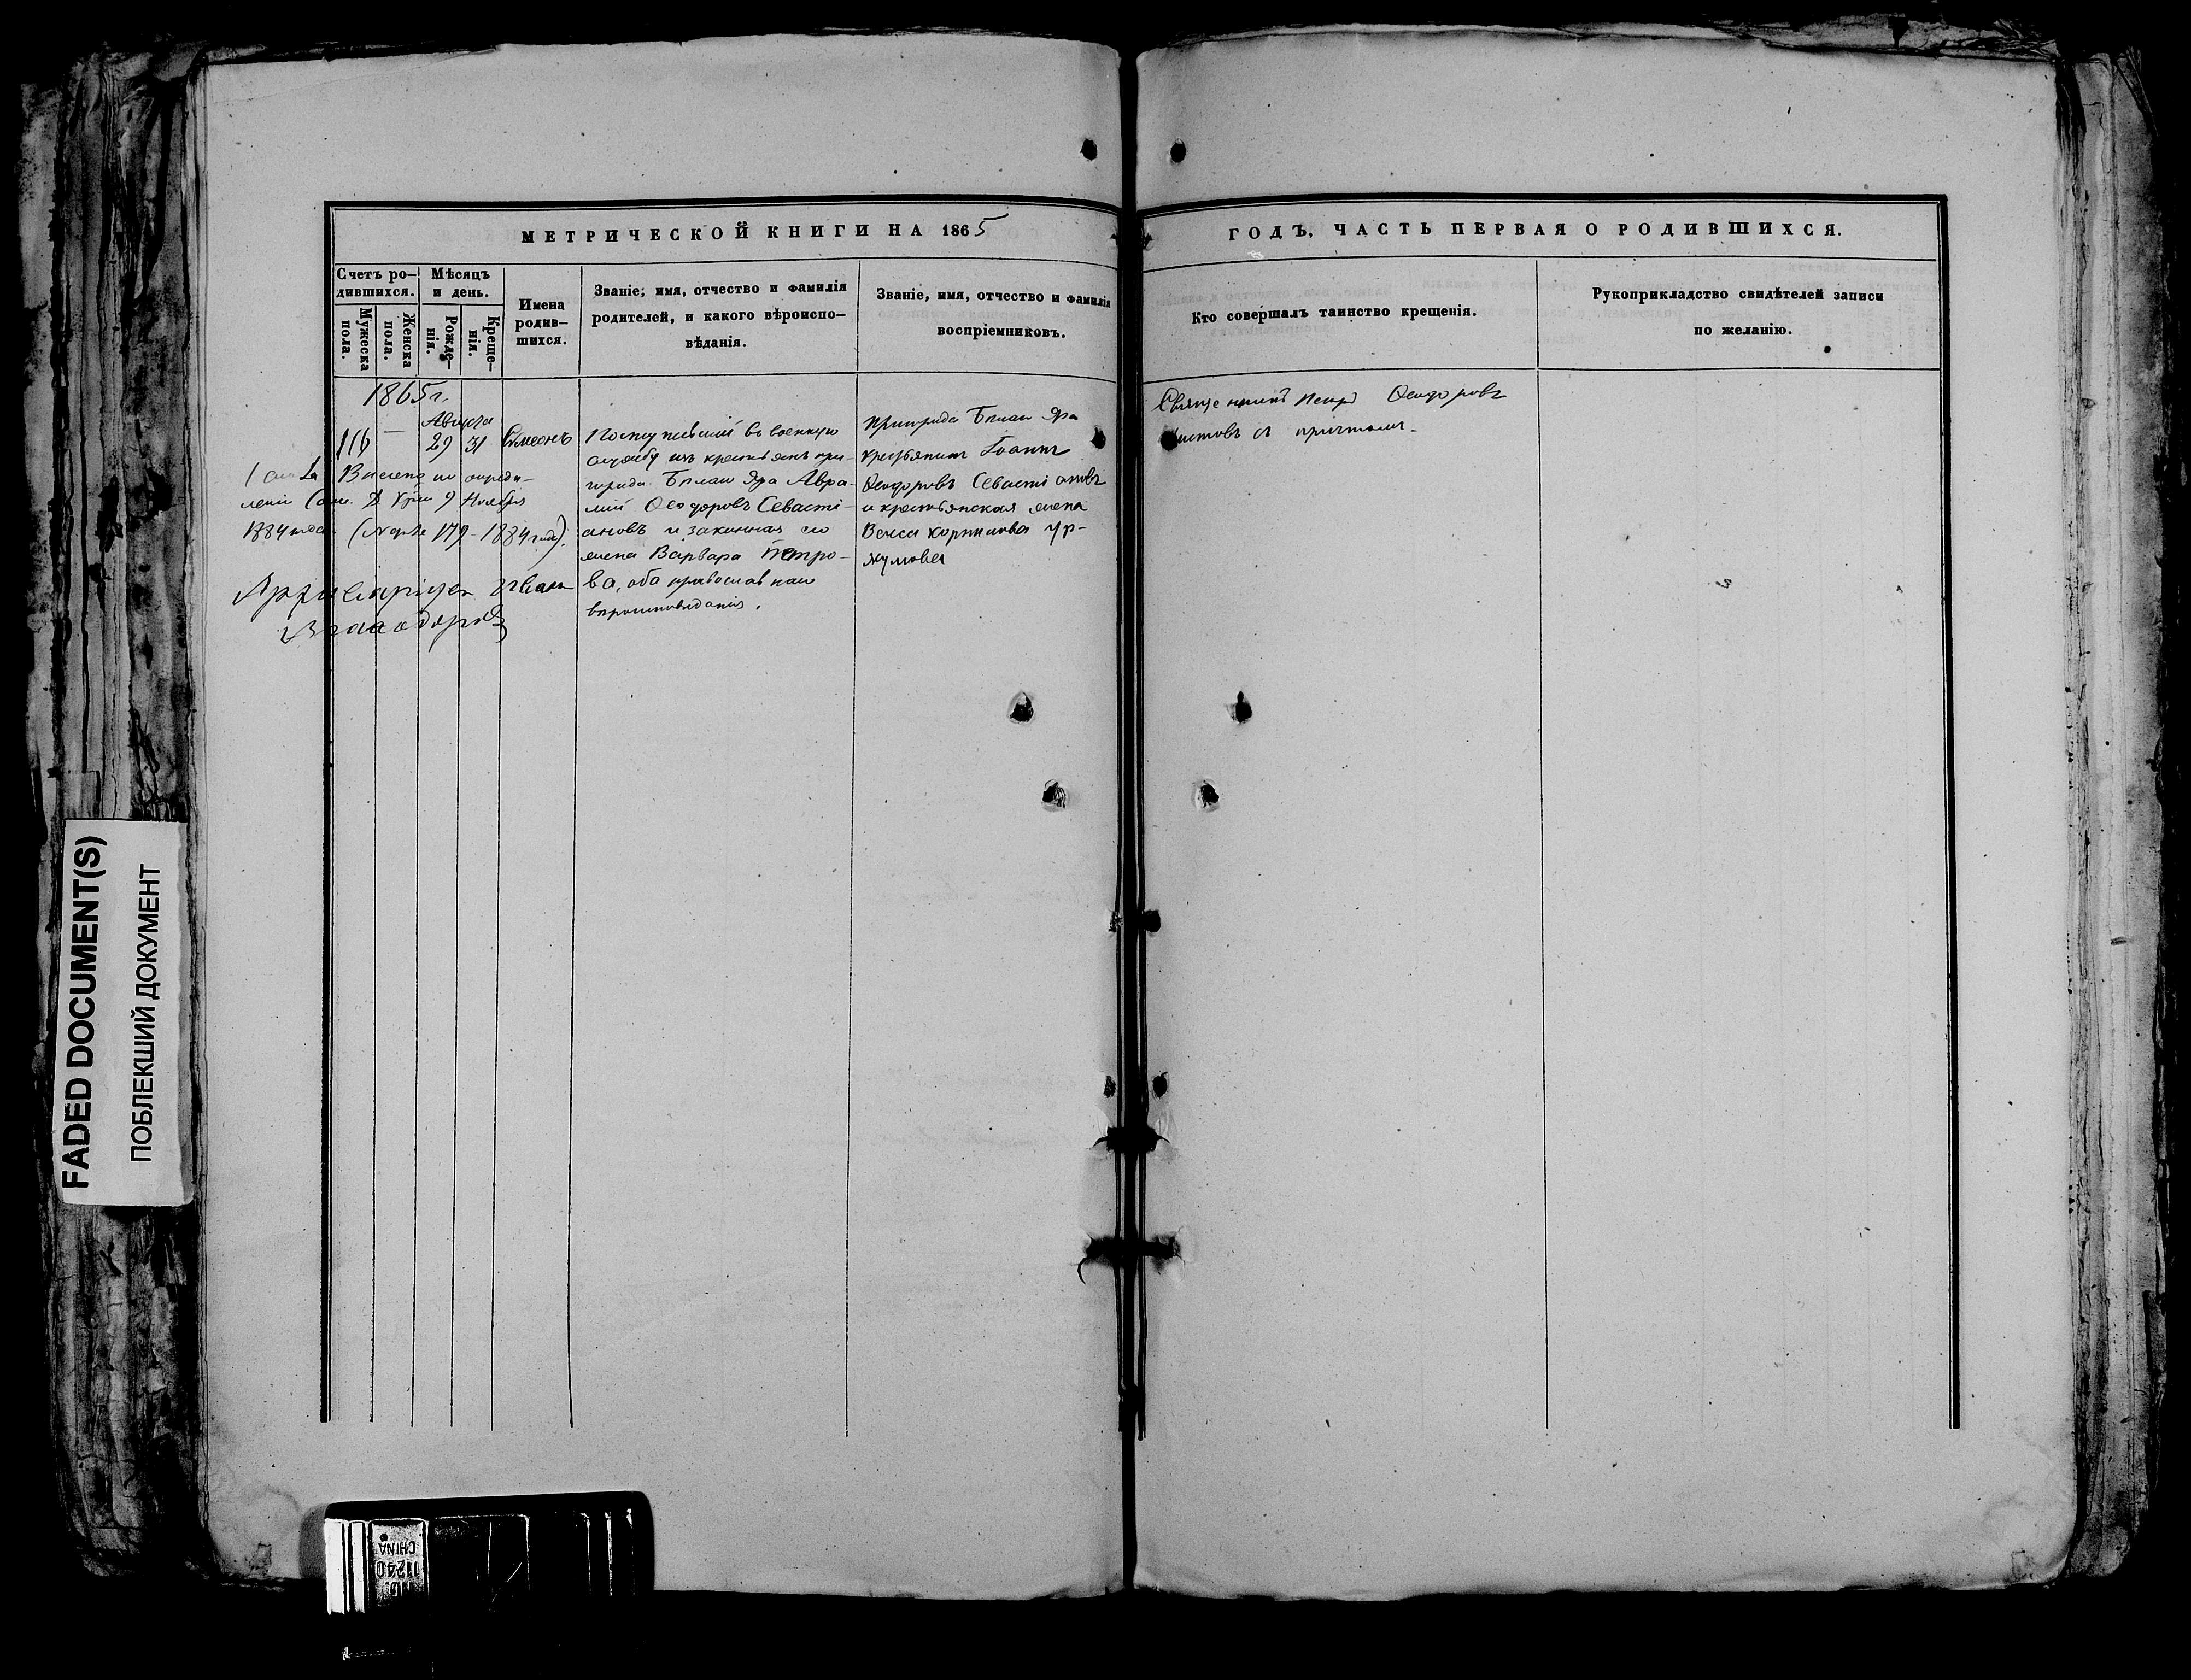 МЕТРИЧЕСКОЙ КНИГИ НА 1865
ГОДЪ, ЧАСТЬ ПЕРВАЯ О РОДИВШИХСЯ.
Счетъ ро-
дившихся.
Мужеска
пола.
Женска
пола.
Мѣсяцъ
и день.
Рожде-
нія.
Креще-
нія.
Имена
родив-
шихся.
Званіе, имя, отчество и фамилія
родителей, и какого вѣроиспо-
вѣданія.
Званіе, имя, отчество и фамилія
воспріемниковъ.
Кто совершалъ таинство крещенія.
Рукоприкладство свидѣтелей записи
по желанію.
1865 г.
Августа
116 — 29 31 Симеонъ
Поступившій въ военную
службу изъ крестьянъ при-
города Бѣлаго Яра Авра-
мій Ѳеодоровъ Севасті-
ановъ и законная его
жена Варвара Петро-
ва, оба православнаго
вѣроисповѣданія.
Пригорода Бѣлаго Яра
крестьянинъ Іоаннъ
Ѳеодоровъ Севастіановъ
и крестьянская жена
Корнилова Ур-
жумова
Священникъ Петръ Ѳеодоровъ
съ причтомъ.
Внесено по опредѣ-
леніи 9 Ноября
1884 года (179 - 1884 года).
Иванъ
FADED DOCUMENT(S)
ПОБЛЕКШИЙ ДОКУМЕНТ
11240
CHINA